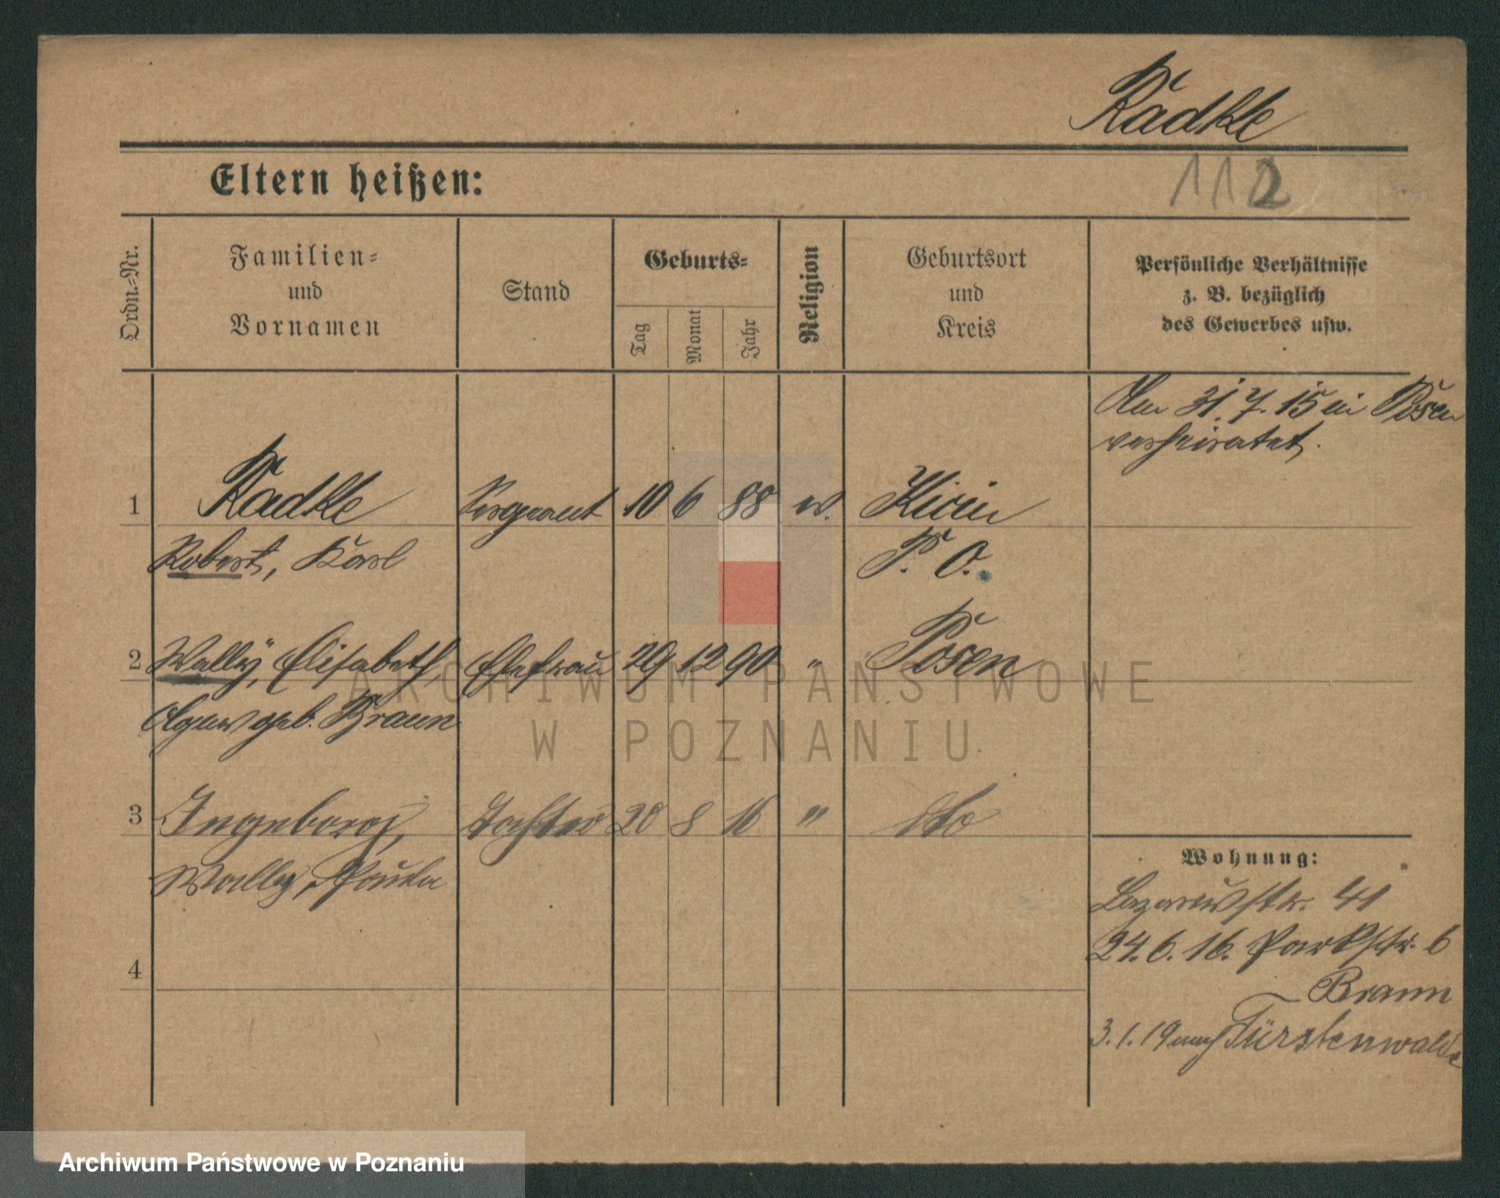 Radtke
112
Eltern heißen:
Ordn.-Nr.
Familien-
und
Vornamen
Stand
Geburts-
Tag
Monat
Jahr
Religion
Geburtsort
und
Kreis
Persönliche Verhältnisse
z. B. bezüglich
des Gewerbes usw.
Am 31.7.15 in Posen
verheiratet.
1 Radtke Sergeant 10 6 88
Robert, Karl P. O.
2 Wally, Elisabeth Ehefrau 29 12 90 " Posen
geb. Braun
3 Ingeborg, Tochter 20 8 16 " dto
Wally, Paula
4
Wohnung:
Lazarusstr. 41
24.6.16. Parkstr. 6
Braun
3.1.19 nach Fürstenwalde
ARCHIWUM PAŃSTWOWE
W POZNANIU
Archiwum Państwowe w Poznaniu